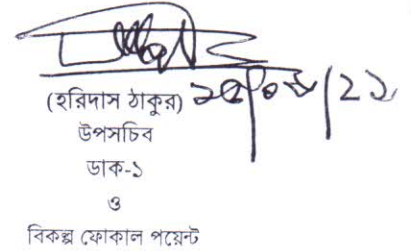 (হরিদাস ঠাকুর)
উপসচিব
ডাক-১
ও
বিকল্প ফোকাল পয়েন্ট